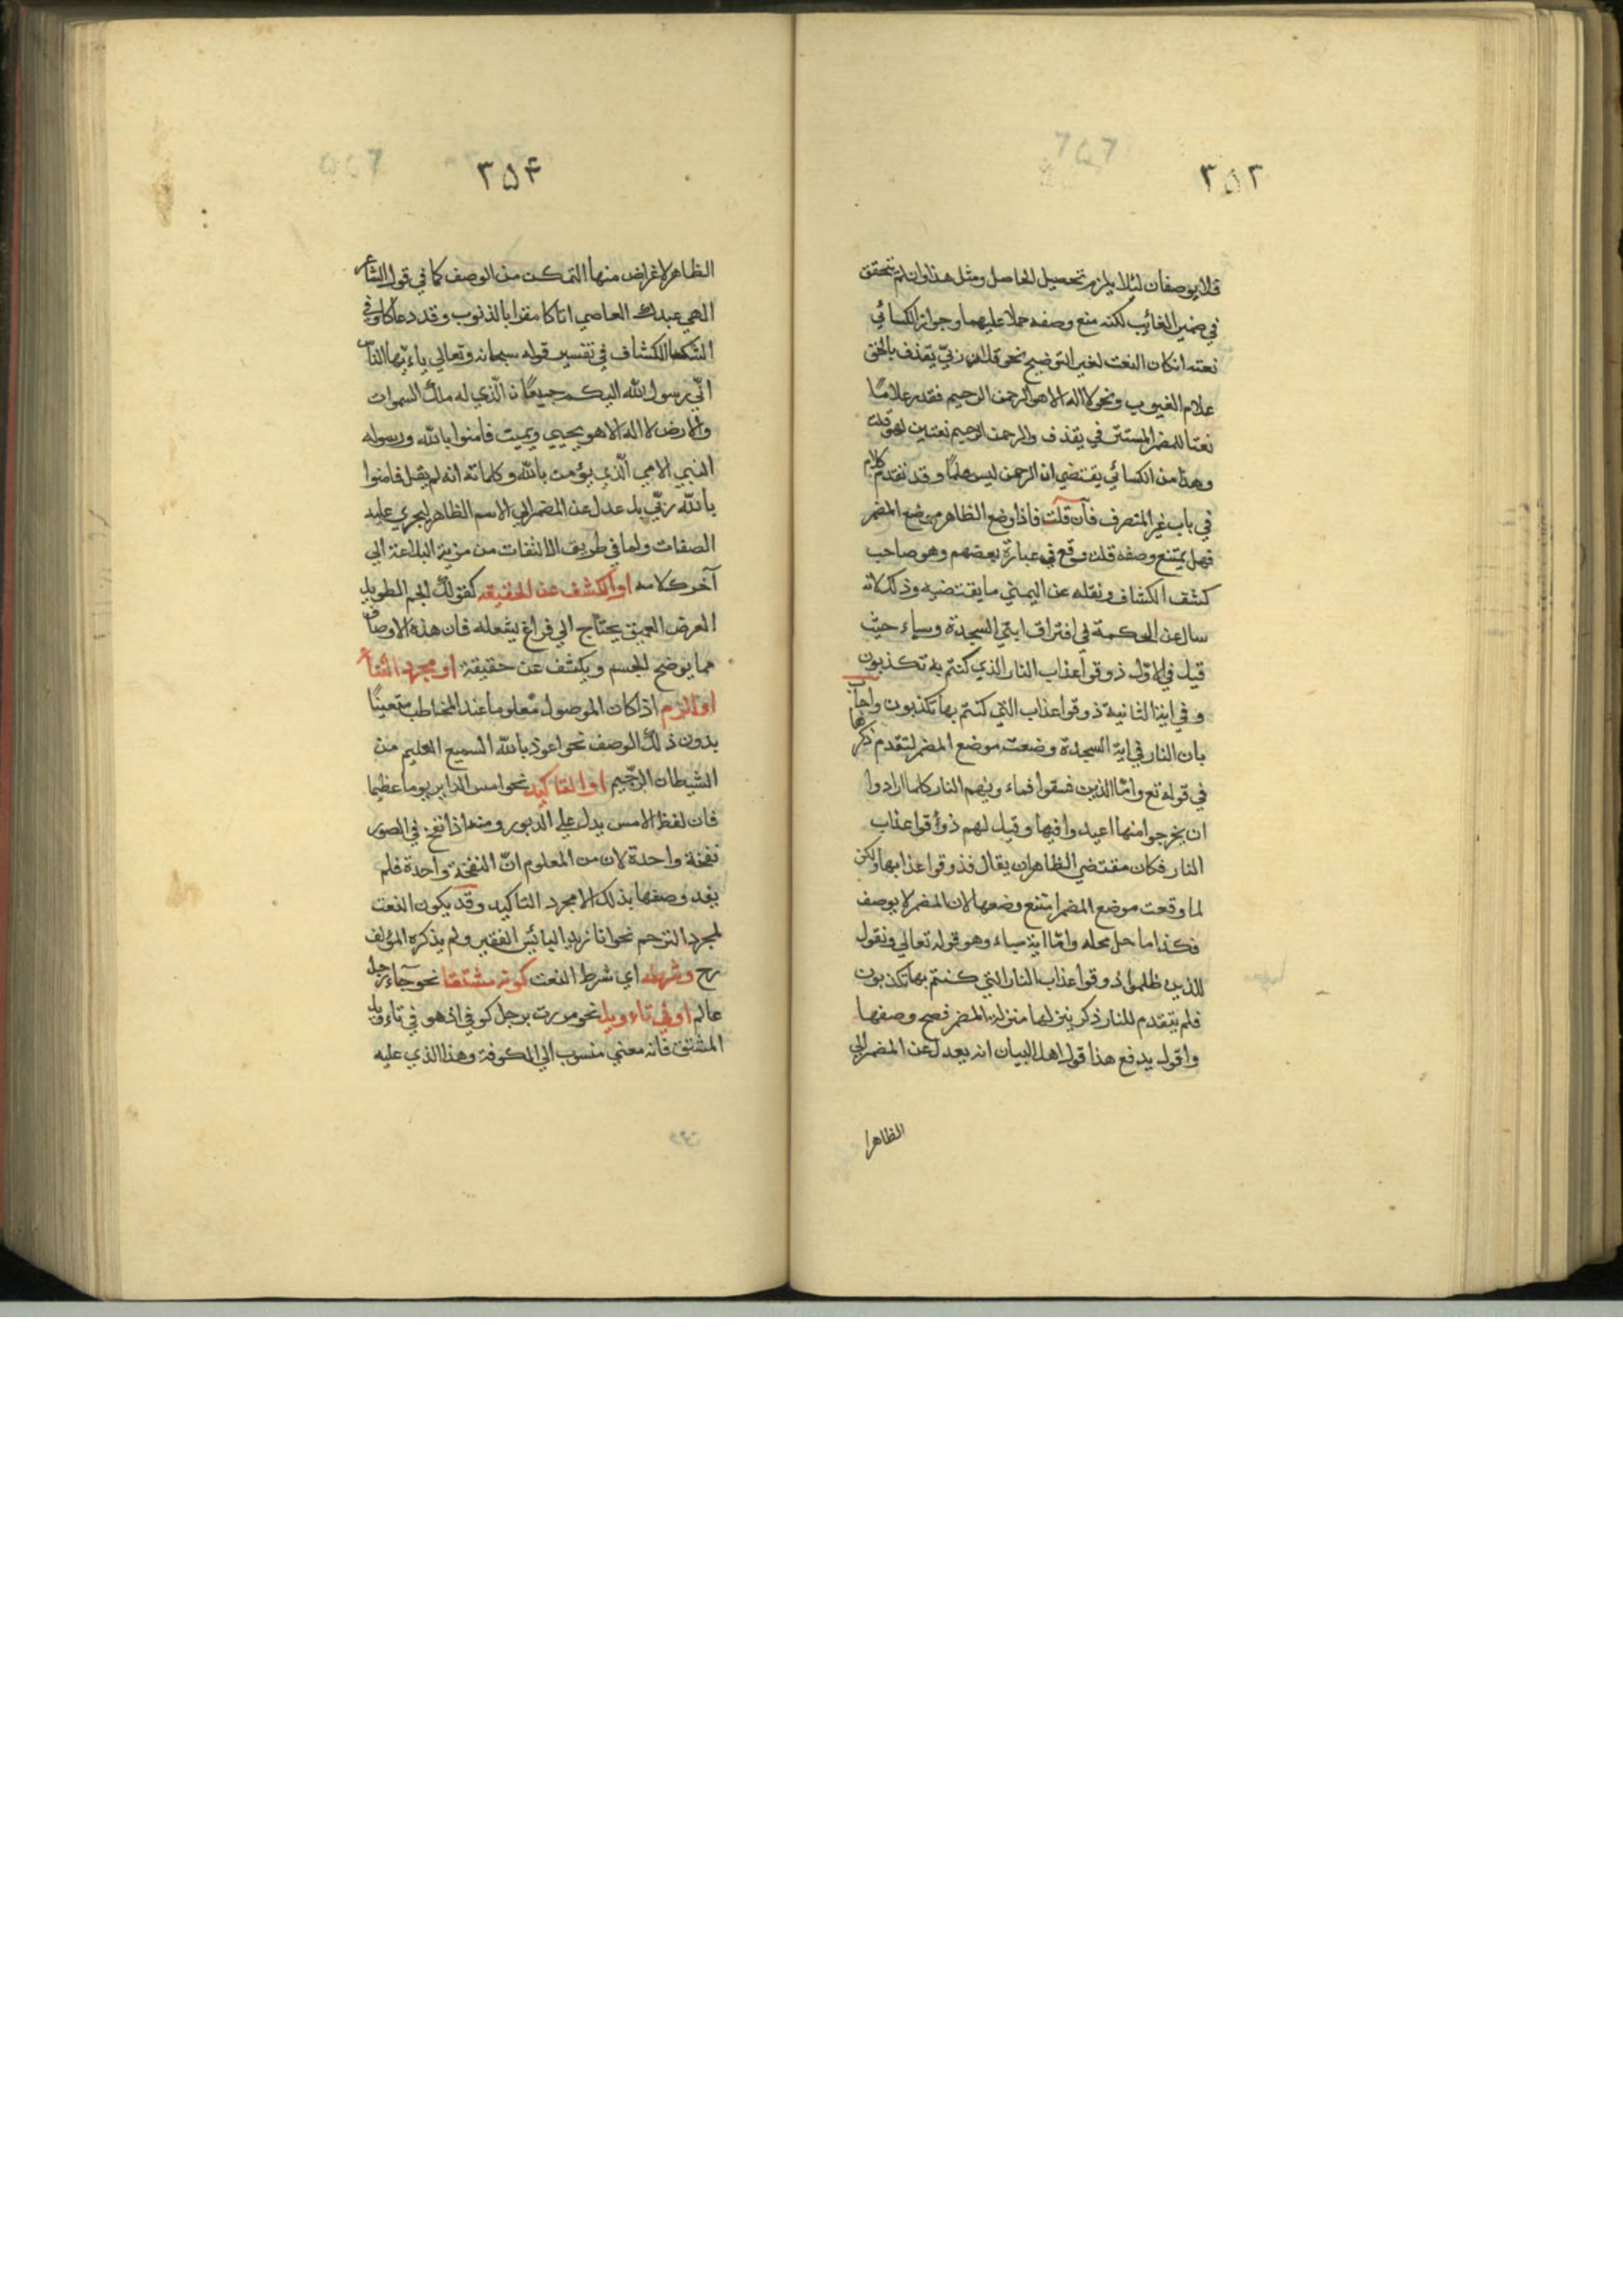 ٣٥٣
فلا يوصفان لئلا يلزم تحصيل الحاصل ومثل هذا وان لم يتحقق
في ضمير الغائب لكنه منع وصفه حملا عليهما وجواز الكسائي
نعته انكان النعت لغير التوضيح نحو قل ان ربّي يقذف بالحق
علام الغيوب ونحو لا اله الا هو الرحمن الرحيم فقدر علامًا
نعتا للمضمر المستتر في يقذف والرحمن الرحيم نعتين لهو قلت
وهذا من الكسائي يقتضي ان الرحمن ليس علمًا وقد تقدم كلام
في باب غير المنصرف فآن قلت فاذا وضع الظاهر موضع المضمر
فهل يمتنع وصفه قلت وقع في عبارة بعضهم وهو صاحب
كشف الكشاف ونقله عن اليمني ما يقتضيه وذلك لانه
سال عن الحكمة في افتراق ايتي السجدة وسباء حيث
قيل في الاوّل ذوقوا عذاب النار الذي كنتم به تكذبون
وفي اية الثانية ذوقوا عذاب التي كنتم بها تكذبون واجاب
بان النار في اية السجدة وضعت موضع المضمر لتقدم ذكرها
في قوله تع وامّا الذين فسقوا فماء ويٰهم النار كلما ارادوا
ان يخرجوا منها اعيدوا فيها وقيل لهم ذوقوا عذاب
النار فكان مقتضي الظاهر ان يقال فذوقوا عذابها ولكن
لما وقعت موضع المضمر امتنع وضعها لان المضمر لا يوصف
فكذا ما حل محله وامّا اية سباء وهو قوله تعالي ونقول
للذين ظلموا ذوقوا عذاب النار التي كنتم بها تكذبون
فلم يتقدم للنار ذكر ينزلها منزلة المضمر فصح وصفها
واقول يدفع هذا قول اهل البيان انه يعدل عن المضمر الي
الظاهر
٣٥۴
الظاهر لاغراض منها التمكن من الوصف كما في قول الشاعر
الهي عبدك العاصي اتاكا مقرا بالذنوب وقد دعاكا وفي
الكشاف في تفسير قوله سبحانه وتعالي ياءيّها الناس
انّي رسول الله اليكم جميعًا ن الّذي له ملك السموات
والارض لا اله الا هو يحيي ويميت فامنوا بالله ورسوله
النبي الامي الّذي يؤمن بالله وكلماته انه لم يقل فامنوا
بالله ربّي بل عدل عن المضمر الي الاسم الظاهر ليجري عليه
الصفات ولما في طريق الالتفات من مزية البلاغة الي
آخر كلامه او الكشف عن الحقيقه كقولك الجسم الطويل
العرض العميق يحتاج الي فراغ يشغله فان هذه الاوصاف
مما يوضح الجسم ويكشف عن حقيقة او مجرد الثناء
او الذم اذا كان الموصول معلوما عند المخاطب متعينًا
بدون ذلك الوصف نحو اعوذ بالله السميع العليم من
الشيطان الرجّيم او التاكيد نحو امس الدابر يوما عظيما
فان لفظ الامس يدل علي الدبور ومنه اذا نفخ في الصور
نفخة واحدة لان من المعلوم انّ النفخة واحدة فلم
يفد وصفها بذلك الا مجرد التاكيد وقد يكون النعت
لمجرد الترحم نحو انا زيد البائس الفقير ولم يذكره المؤلف
رح وشرطه اي شرط النعت كونه مشتقا نحو جآء رجل
عالم او في تاءويله نحو مررت برجل كوفي اذ هو في تاءويل
المشتق فانه معني منسوب الي الكوفة وهذا الذي عليه